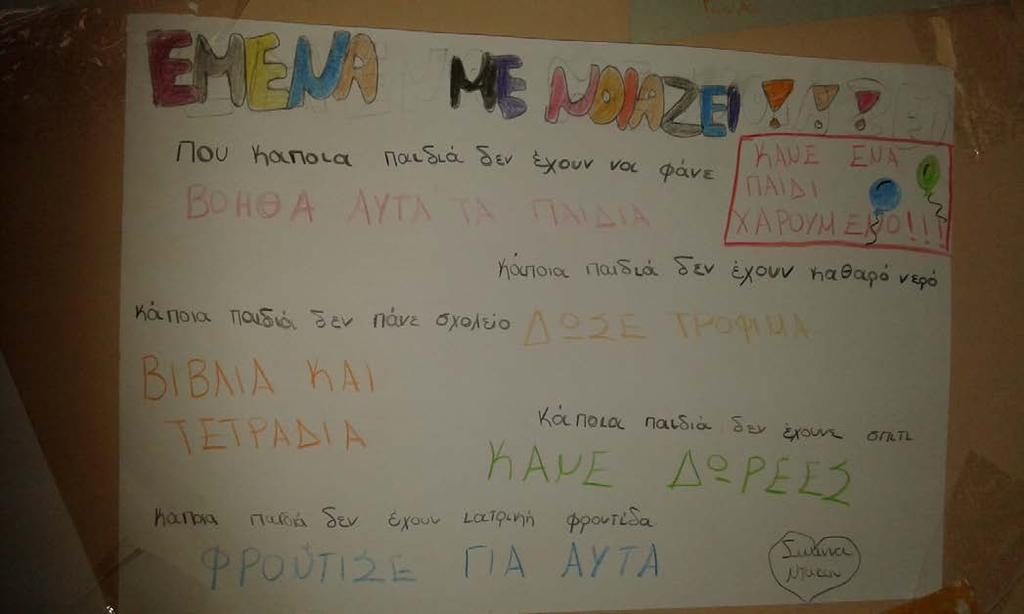 ΕΜΕΝΑ ΜΕ ΝΟΙΑΖΕΙ!!!
Που κάποια παιδιά δεν έχουν να φάνε
ΒΟΗΘΑ ΑΥΤΑ ΤΑ ΠΑΙΔΙΑ
ΚΑΝΕ ΕΝΑ
ΠΑΙΔΙ
ΧΑΡΟΥΜΕΝΟ!!!
κάποια παιδιά δεν έχουν καθαρό νερό
κάποια παιδιά δεν πάνε σχολείο
ΔΩΣΕ ΤΡΟΦΙΜΑ
ΒΙΒΛΙΑ ΚΑΙ
ΤΕΤΡΑΔΙΑ
κάποια παιδιά δεν έχουνε σπίτι
ΚΑΝΕ ΔΩΡΕΕΣ
κάποια παιδιά δεν έχουν ιατρική φροντίδα
ΦΡΟΥΤΙΣΕ ΓΙΑ ΑΥΤΑ